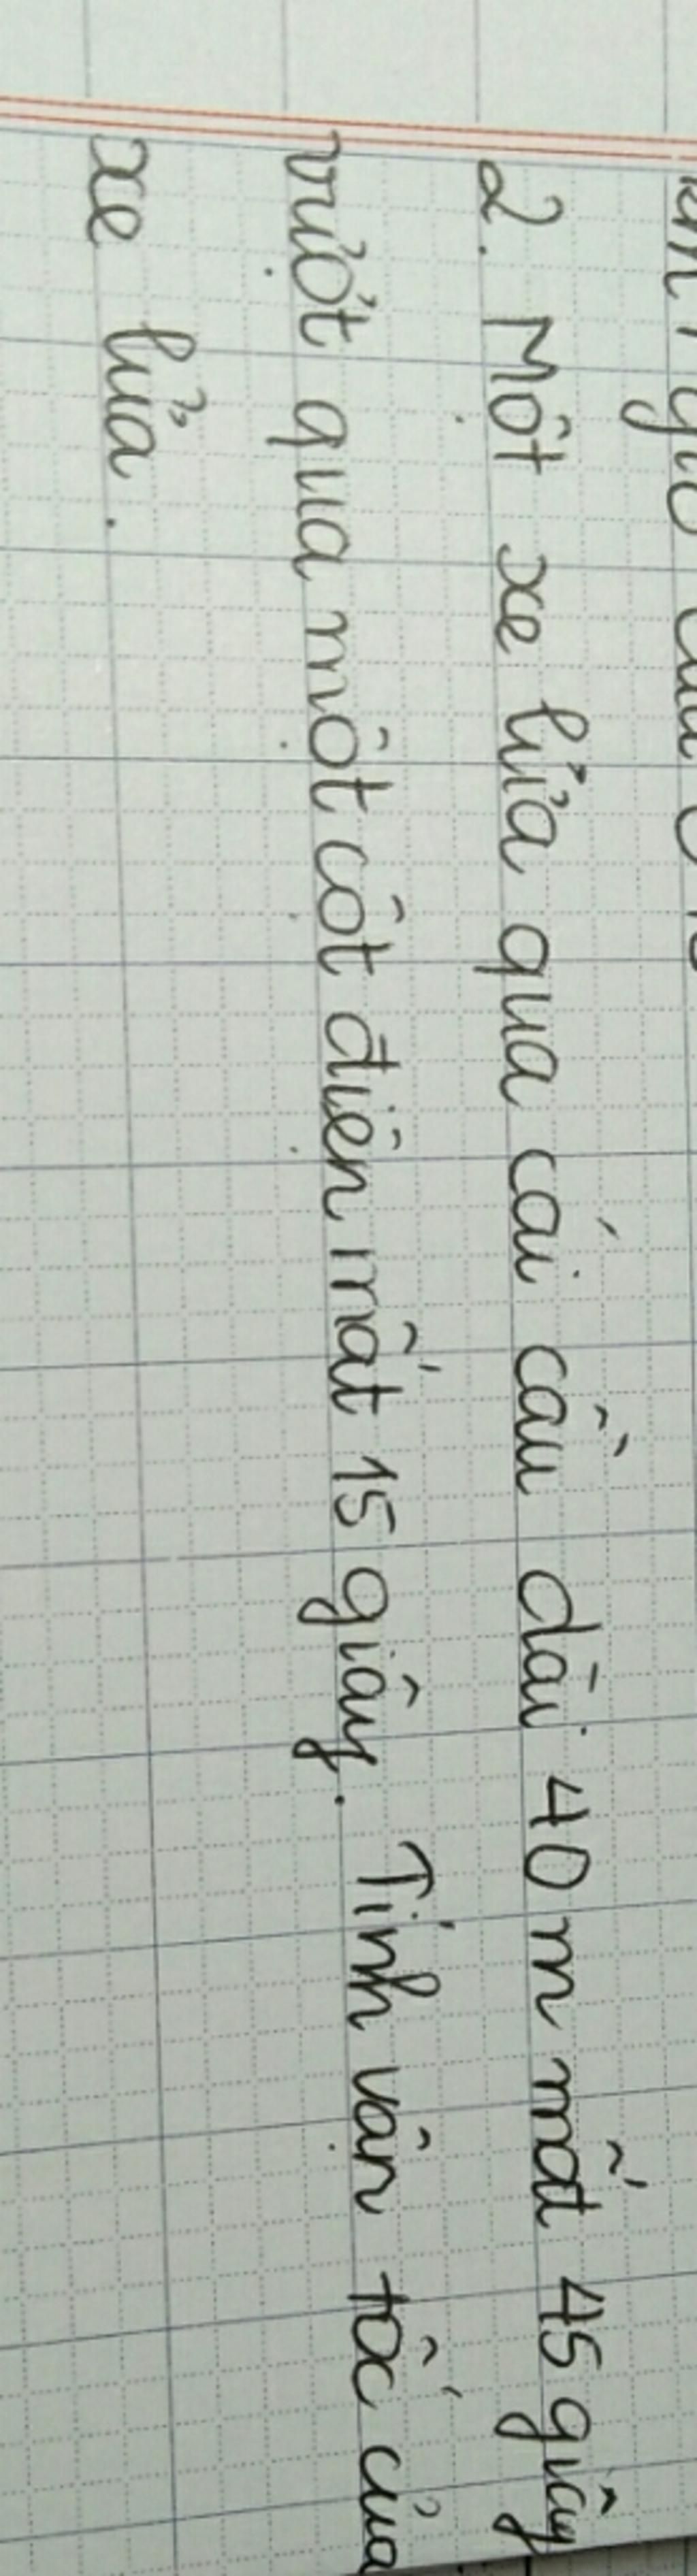 2. Một xe lửa qua cái cầu dài 40 m mất 45 giây
vượt qua một cột điện mất 15 giây. Tính vận tốc của
xe lửa.